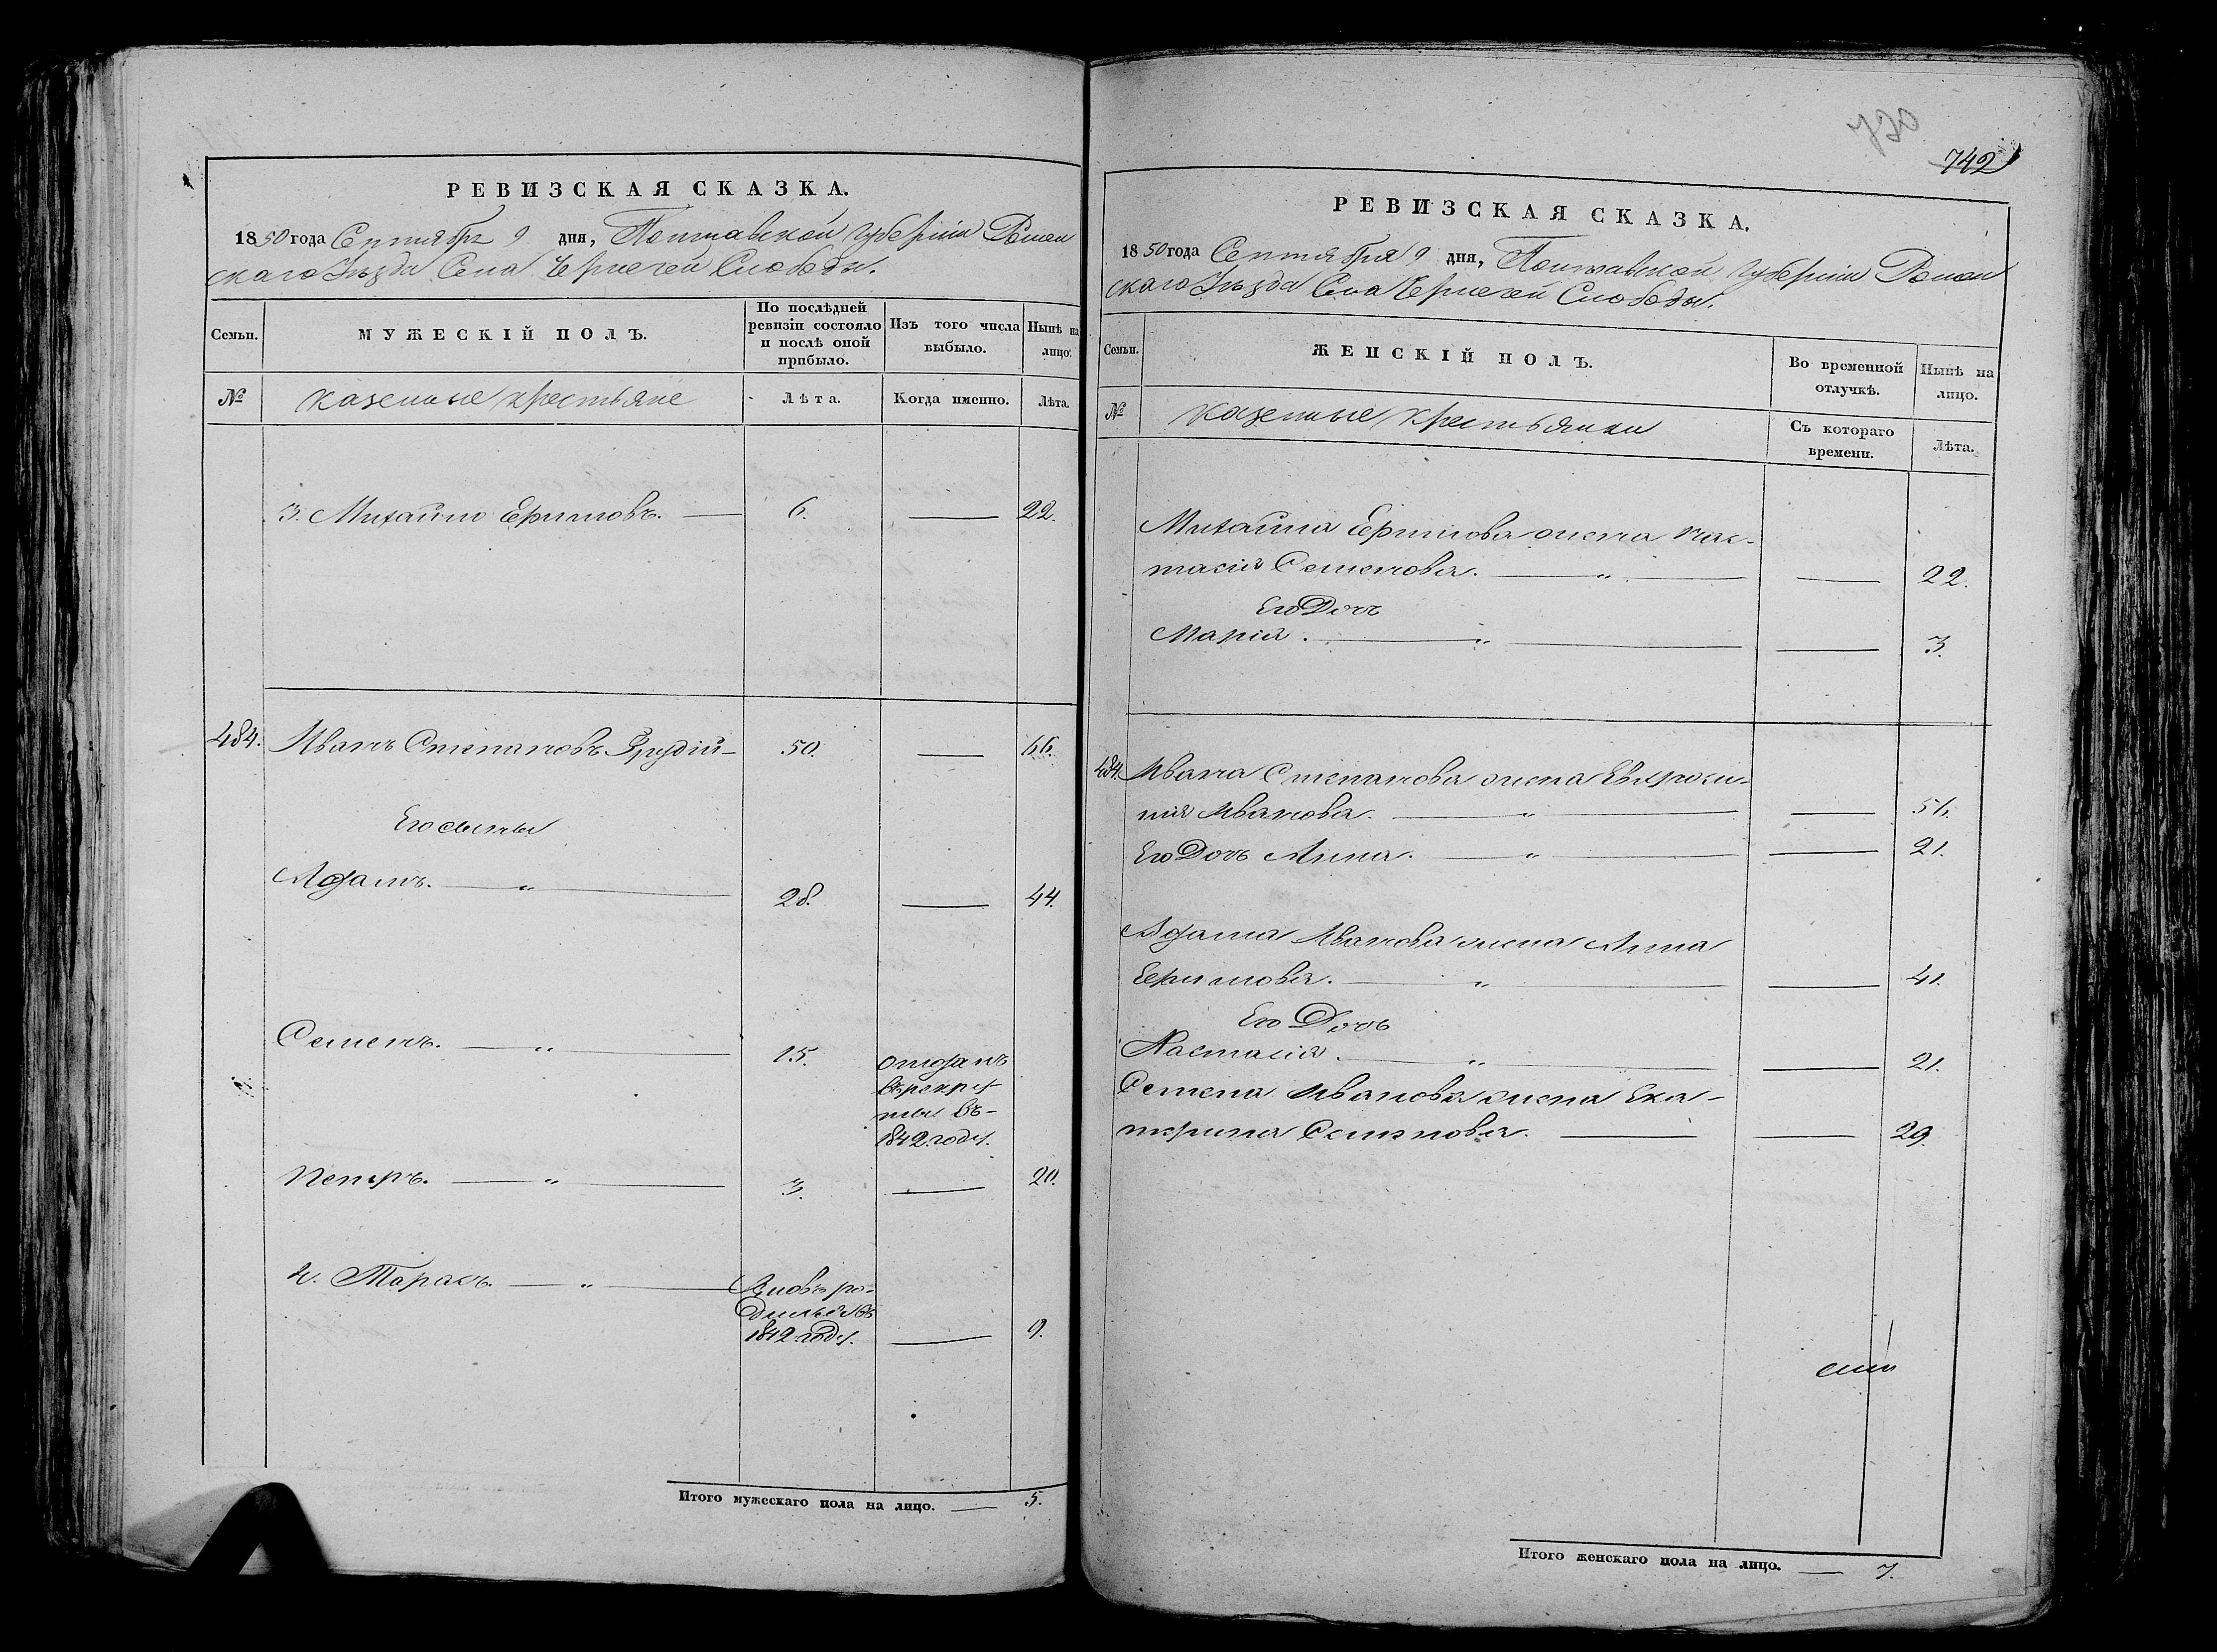 РЕВИЗСКАЯ СКАЗКА.
1850 года Сентября 9 дня, Полтавской губернии Ромен
скаго Уѣзда Села Чернечей Слободы.
Семьи.
МУЖЕСКІЙ ПОЛЪ.
По послѣдней
ревизіи состояло
и послѣ оной
прибыло.
Изъ того числа
выбыло.
Нынѣ на
лицо.
№
казенные крестьяне
Лѣта.
Когда именно.
Лѣта.
3. Михайло Ефимовъ. 6. 22.
484. Иванъ Степановъ 50. 66.
Его сыны
Адамъ. " 28. 44.
Семенъ. " 15. отданъ
въ рекру
ты въ
1842. году.
Петръ. " 3. 20.
Тарасъ. " Вновь ро-
дился въ
1842. году. 9.
Итого мужескаго пола на лицо. 5.
742
РЕВИЗСКАЯ СКАЗКА.
1850 года Сентября 9 дня, Полтавской губернии Ромен
скаго Уѣзда Села Чернечей Слободы.
Семьи.
ЖЕНСКІЙ ПОЛЪ.
Во временной
отлучкѣ.
Нынѣ на
лицо.
№
казенные крестьянки
Съ котораго
времени.
Лѣта.
Михайла Ефимова жена Нас-
тасия Семенова. " 22.
Его Дочь
Мария. " 3.
484. Ивана Степанова жена Евфроси-
ния Иванова. " 56.
Его Дочь Анна. " 21.
Адама Иванова жена Анна
Ефимова. " 41.
Его Дочь
Настасия. " 21.
Семена Иванова жена Ека-
терина Семенова. 29.
Итого женскаго пола на лицо. 7.